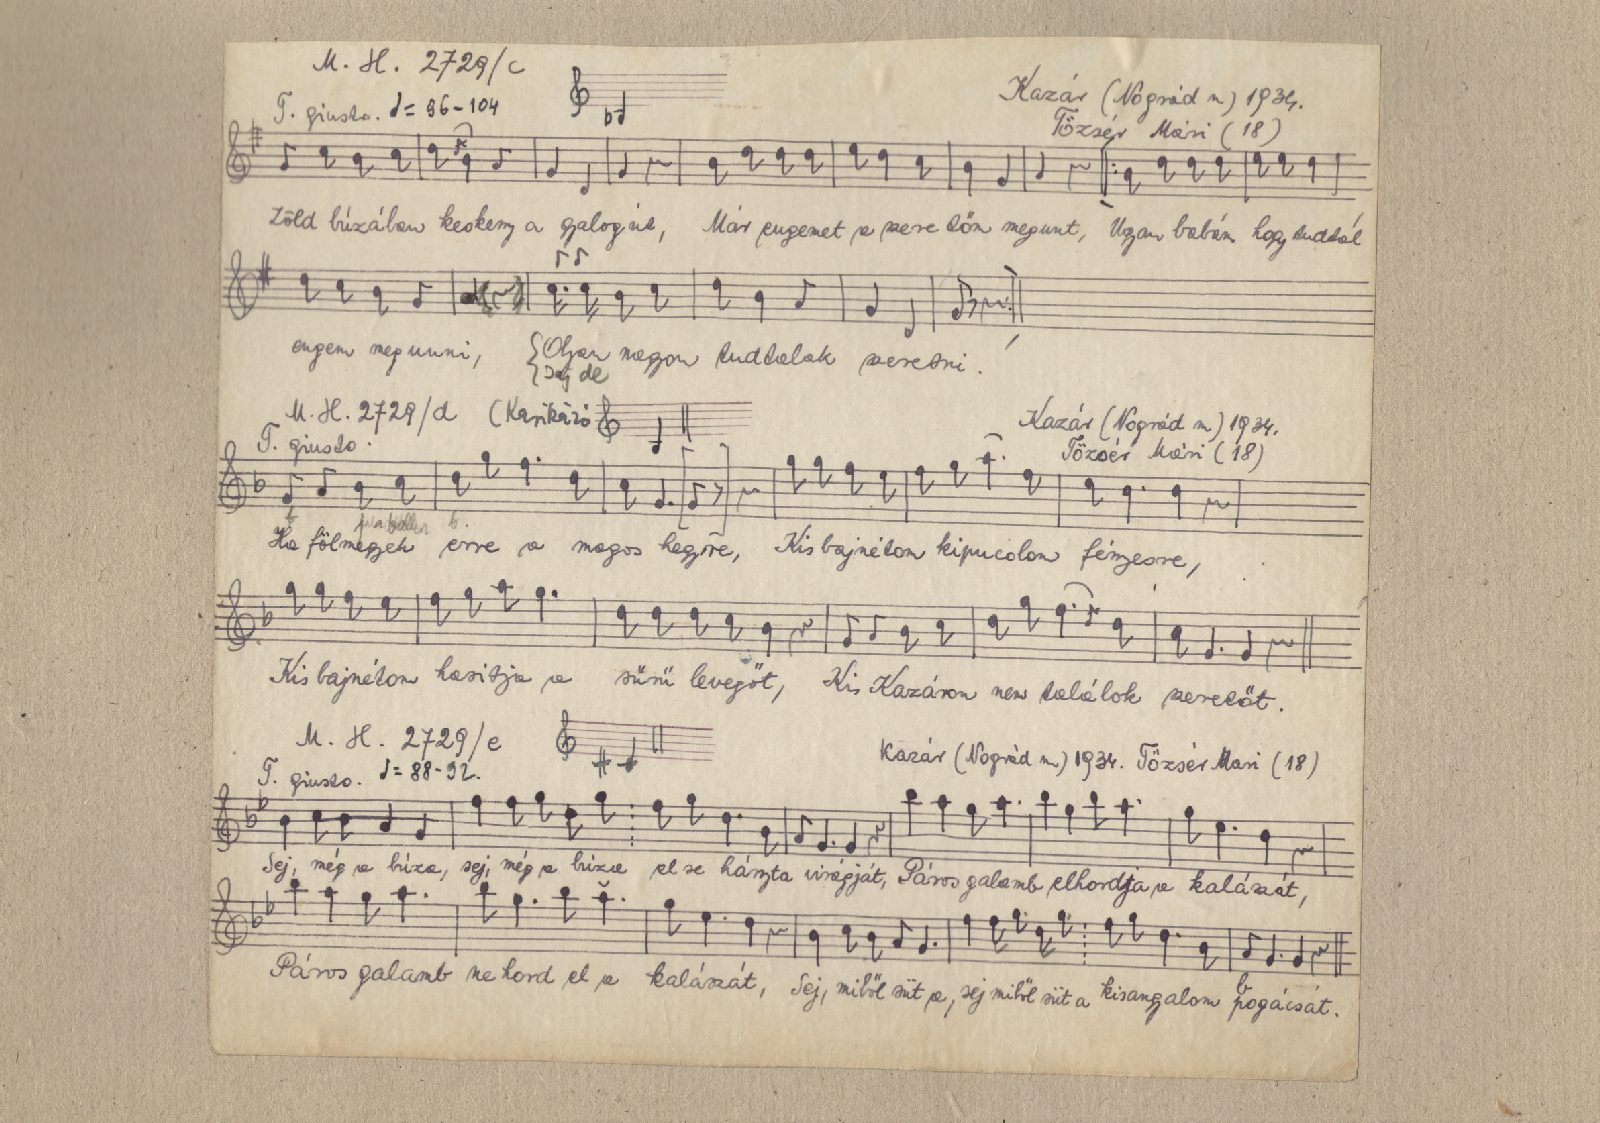 M. H. 2729/c
T. giusto. ♩= 96-104
Kazár (Nógrád m) 1934.
Tőzsér Mári (18)
Zöld búzában keskeny a gyalogút, Már engemet a szeretőm megunt, Ugyan babám hogy tudtál
engem megunni, Olyan nagyon tudtalak szeretni.
Jaj de
M. H. 2729/d (Karikázó
T. giusto.
Kazár (Nográd m) 1934.
Tőzsér Mári (18)
Ha fölmegyek erre a magos hegyre, Kis bajnétom kipucolom fényesre,
Kis bajnétom hasítja a sűrű levegőt, Kis Kazáron nem találok szeretőt.
M. H. 2729/e
T. giusto. ♩= 88-92.
Kazár (Nográd m.) 1934. Tőzsér Mari (18)
Sej, még a búza, sej, még a búza el se hányta virágját, Páros galamb elhordja a kalászát,
Páros galamb ne hord el a kalászát, Sej, miből süt a, sej miből süt a kisangyalom pogácsát.
b